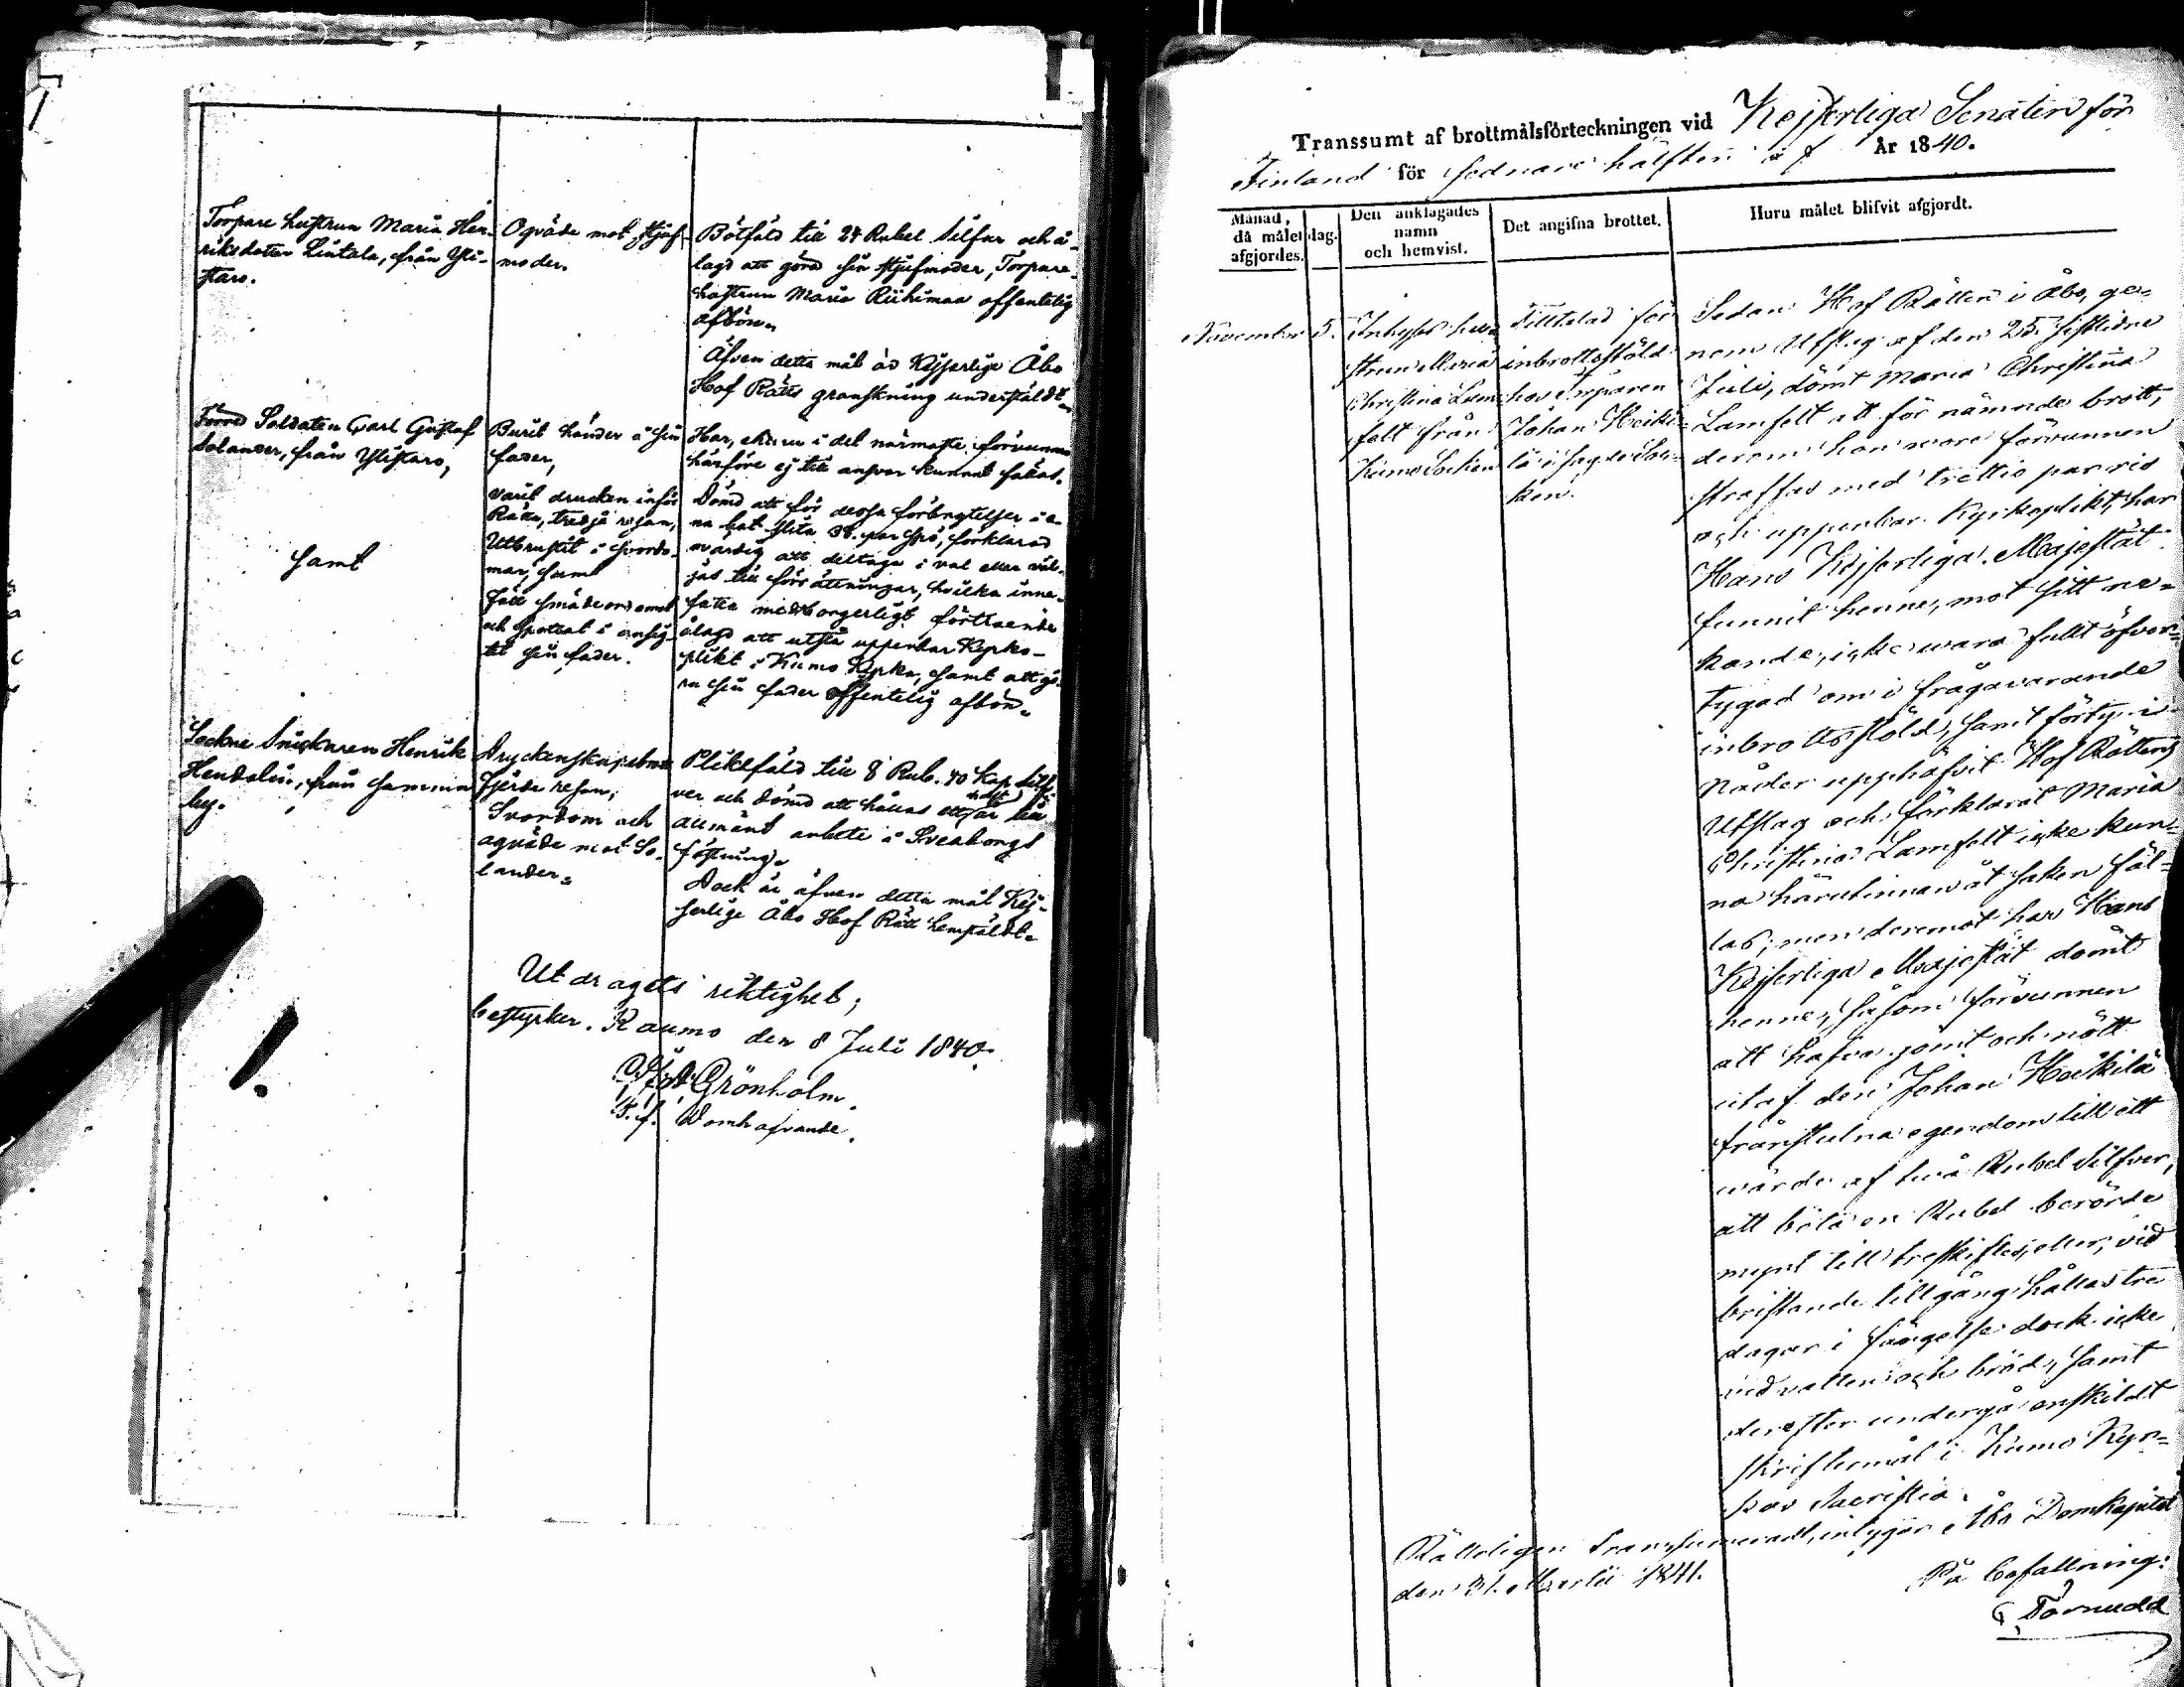 Torpare hustrun Maria Hen-
riksdotter Lintala, från Yli-
staro.
Oqväde mot stjuf-
moder.
Bötfäld till 24 Rubel Silfver och å-
lagd att göra sin stjufmoder, Torpare-
hustrun Maria Riihimaa offentelig
afbön.
Äfven detta mål är Kejserlige Åbo
Hof Rätts granskning underställdt.
Förre Soldaten Carl Gustaf
Solander, från Ylistaro,
samt
Burit händer å sin
fader,
varit drucken inför
Rätta, tredje resan,
Utbrustit i svordo-
mar, samt
fält smädeord emot
och spottat i ansig-
tet sin fader.
Har, ehuru i det närmaste förvunnen
härföre ej till ansvar kunnat fällas.
Dömd att för dessa förbrytelser i e-
na bot slita 38. par spö, förklarad
ovärdig att deltaga i val eller väl-
jas till förrättningar, hvilka inne-
fatta medborgerligt förtroende
ålagd att utstå uppenbar Kyrko-
plikt i Kumo Kyrka, samt att gö-
ra sin fader offentelig afbön.
Sockne Snickaren Henrik
Hendelin, från samma
by.
Dryckenskapsbrott
fjerde resan;
Svordom och
oqväde mot So-
lander.
Pliktfäld till 8 Rub. 40 Kop. Silf-
ver och dömd att hållas ett halft år till
allmänt arbete i Sveaborgs
fästning.
Dock är äfven detta mål Kej-
serlige Åbo Hof Rätt hemstäldt.
Utdragets riktighet,
bestyrker. Raumo den 8 Juli 1840.
Grönholm.
T. f. Domhafvande.
Transsumt af brottmålsförteckningen vid Kejserliga Senaten för
Finland för sednare hälften af År 1840.
Månad,
då målet
afgjordes.
dag.
Den anklagades
namn
och hemvist.
Det angifna brottet.
Huru målet blifvit afgjordt.
November 5.
Inhyses hu-
strun Maria
Christina Lam-
felt från
Kumo Socken
Tilltalad för
inbrottsstöld
hos Torparen
Johan Heiki-
lä i sagde Soc-
ken.
Sedan Hof Rätten i Åbo, ge-
nom Utslag af den 25. sistlidne
Juli, dömt Maria Christina
Lamfelt att för nämnde brott,
derom hon wore förvunnen
straffas med trettio par ris
och uppenbar Kyrkoplikt, har
Hans Kejserliga Majestät
funnit henne, mot sitt ne-
kande, icke wara fullt öfver-
tygad om i frågavarande
inbrottsstöld, samt förty i
nåder upphäfvit Hof Rättens
Utslag och förklarat Maria
Christina Lamfelt icke kun-
na härutinnan åt saken fäl-
las; men deremot har Hans
Kejserliga Majestät dömt
henne, såsom förvunnen
att hafva gömt och nött
utaf den Johan Heikilä
frånstulna egendom till ett
wärde af två Rubel Silfver,
att böta en Rubel berörde
mynt till treskiftes, eller, vid
bristande tillgång hållas tre
dagar i fängelse dock icke
vid vatten och bröd, samt
derefter undergå enskildt
skriftermål i Kumo Kyr-
kas Sacristia.
Rätteligen transsumeradt, intygar Åbo Domkapitel
den 31. Martii 1841.
På befallning:
G Törnudd